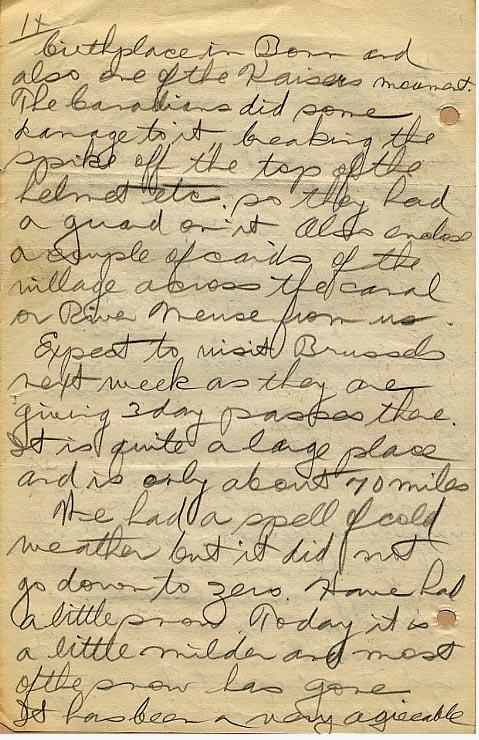 14
birthplace in Bonn and
also one of the Kaisers monument.
The Canadians did some
damage to it breaking the
spike off the top of the
helmet etc. so they had
a guard on it Also enclose
a couple of cards of the
village across the canal
or River Meuse from us.
Expect to visit Brussels
next week as they are
giving 3 day passes there.
It is quite a large place
and is only about 70 miles
We had a spell of cold
weather but it did not
go down to zero. Have had
a little snow Today it is
a little milder and most
of the snow has gone
It has been a very agreeable